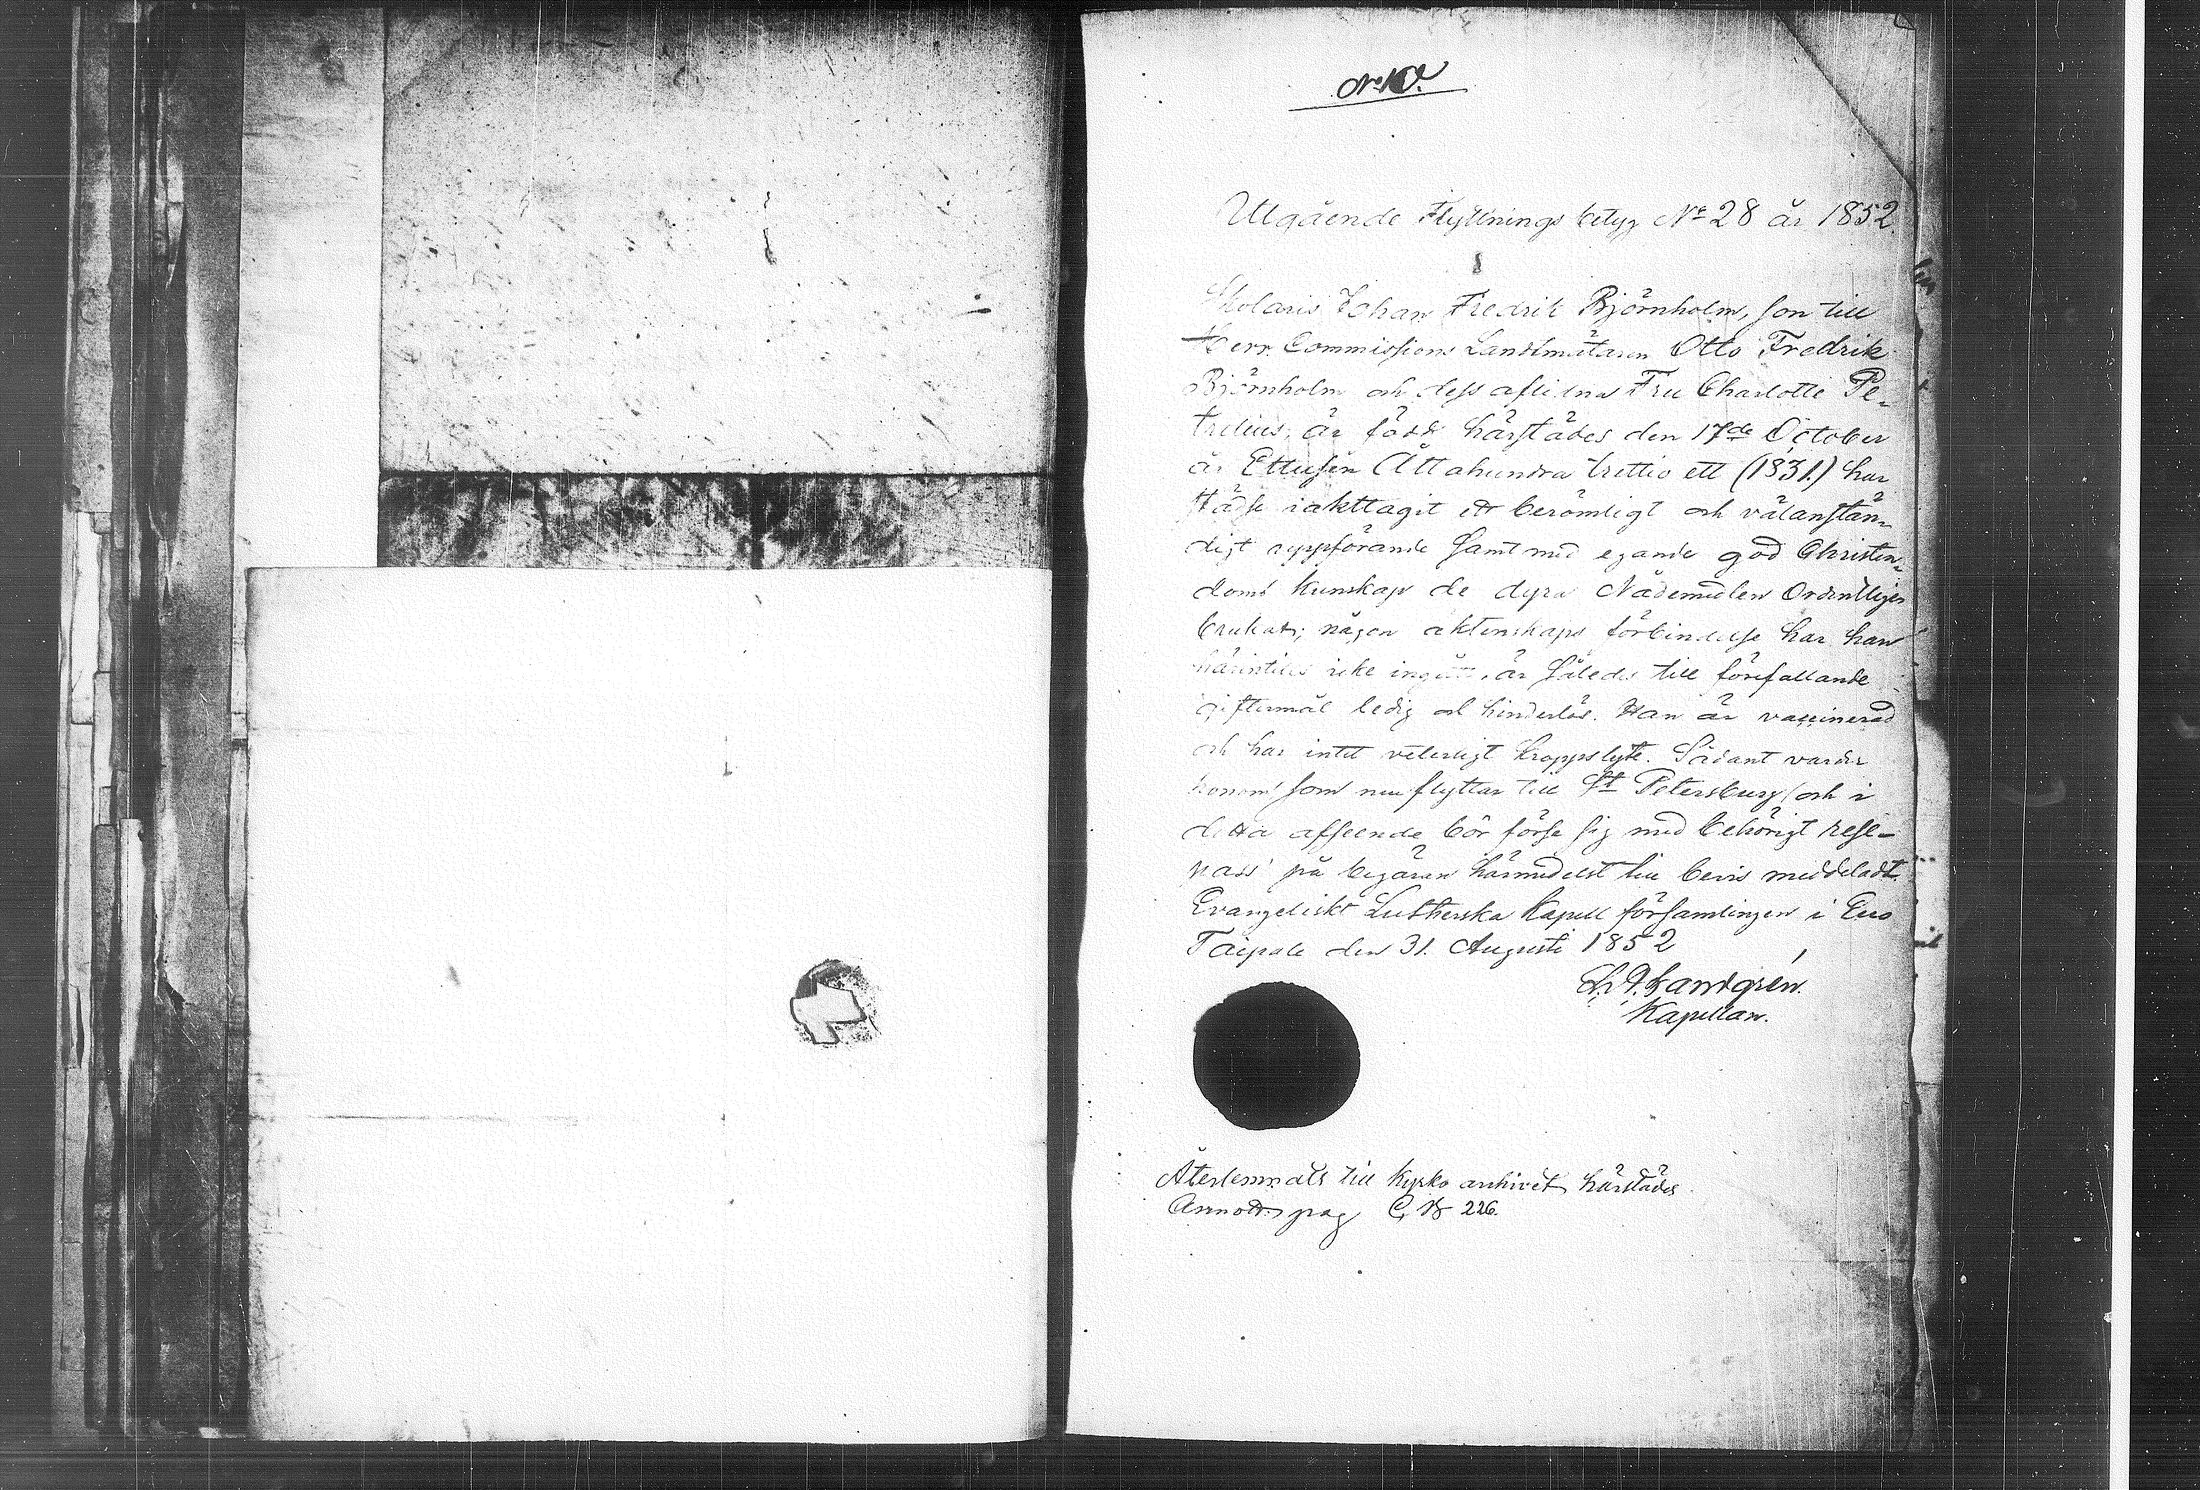 No 10.
Utgående Flyttnings betyg No 28 år 1852.
Skolaris Johan Fredrik Björnholm, son till
Herr Commissions Landtmätaren Otto Fredrik
Björnholm och dess aflidna Fru Charlotte Pe-
trelius, är född härstädes den 17de October
år Ettusen Åttahundra trettio ett (1831.) har
städse iakttagit ett berömligt och välanstän-
digt uppförande samt med egande god Christen-
doms kunskap de dyra Nådemedlen Ordentligen
brukat; någon äktenskaps förbindelse har han
härintills icke ingått, är således till förefallande
giftermål ledig och hinderlös. Han är vaccinerad
och har intet veterligt kroppslyte. Sådant varder
honom som nu flyttar till St Petersburg (och i
detta afseende bör förse sig med behörigt rese-
pass) på begäran härmedelst till bevis meddeladt.
Evangeliskt Lutherska Kapell församlingen i Eno
Taipale den 31. Augusti 1852
Landgrén.
Kapellan.
Återlemnats till Kyrko arkivet härstädes
Annot. pag 226.